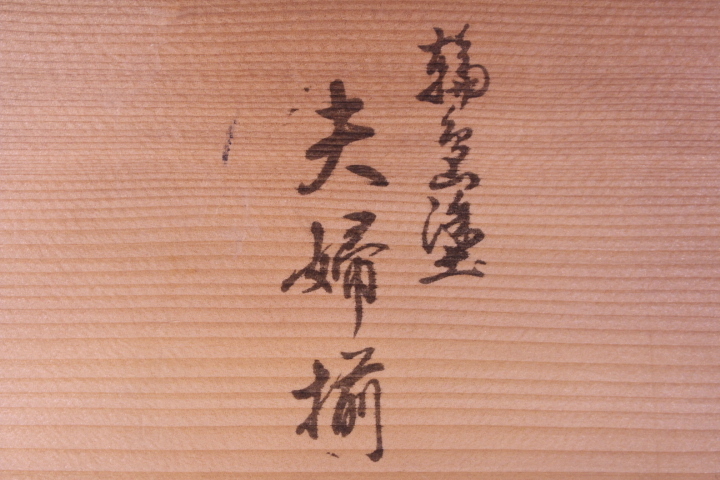 輪島塗
夫婦揃